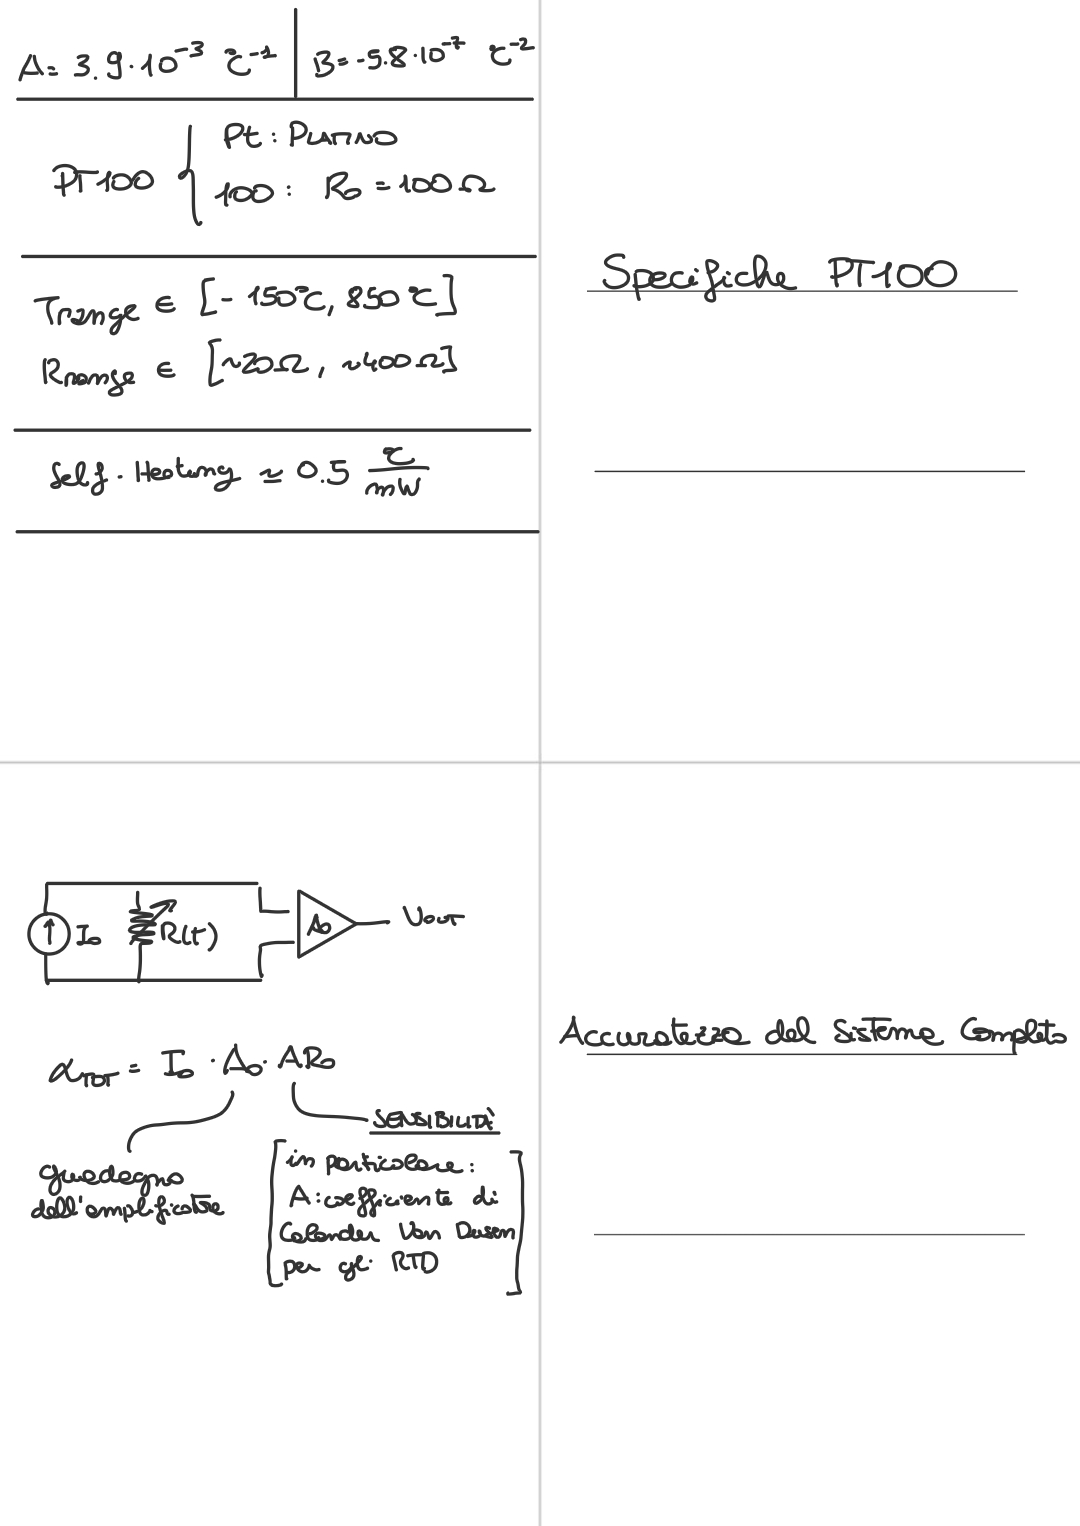 A = 3.9 · 10⁻³ °C⁻¹
B = -5.8 · 10⁻⁷ °C⁻²
PT100
Pt : PLATINO
100 : R₀ = 100 Ω
Trange ∈ [-150°C, 850°C]
Rrange ∈ [~20Ω, ~400Ω]
Self-Heating ≃ 0.5 °C/mW
Specifiche PT100
I₀ R(t) A₀ Vout
αTOT = I₀ · A₀ · AR₀
SENSIBILITÀ
guadagno
dell'amplificatore
in particolare :
A : coefficiente di
Calander Van Dusen
per gli RTD
Accuratezza del Sistema Completo